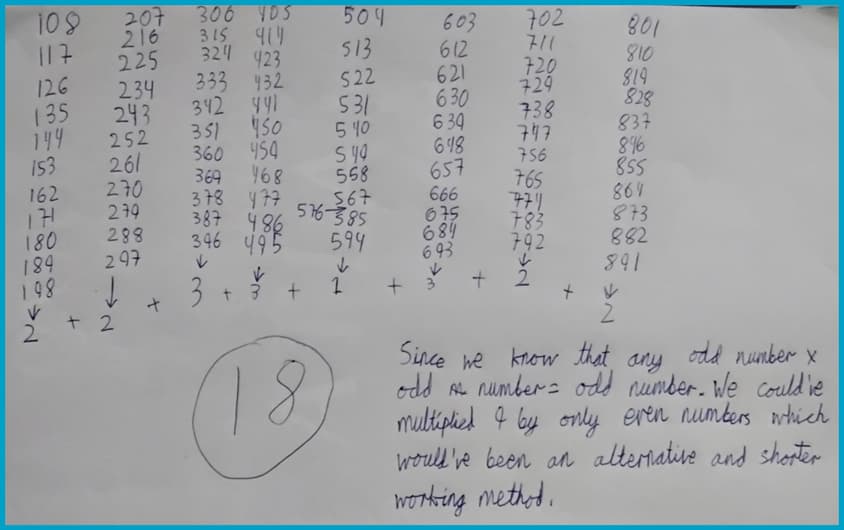 108 207 306 405 504 603 702 801
117 216 315 414 513 612 711 810
126 225 324 423 522 621 720 819
135 234 333 432 531 630 729 828
144 243 342 441 540 639 738 837
153 252 351 450 549 648 747 846
162 261 360 459 558 657 756 855
171 270 369 468 567 666 765 864
180 279 378 477 576→ 675 774 873
189 288 387 486 585 684 783 882
198 297 396 495 594 693 792 891
↓ ↓ ↓ ↓ ↓ ↓ ↓ ↓
2 + 2 + 3 + 3 + 1 + 3 + 2 + 2
18
Since we know that any odd number ×
odd number = odd number. We could've
multiplied 9 by only even numbers which
would've been an alternative and shorter
working method.